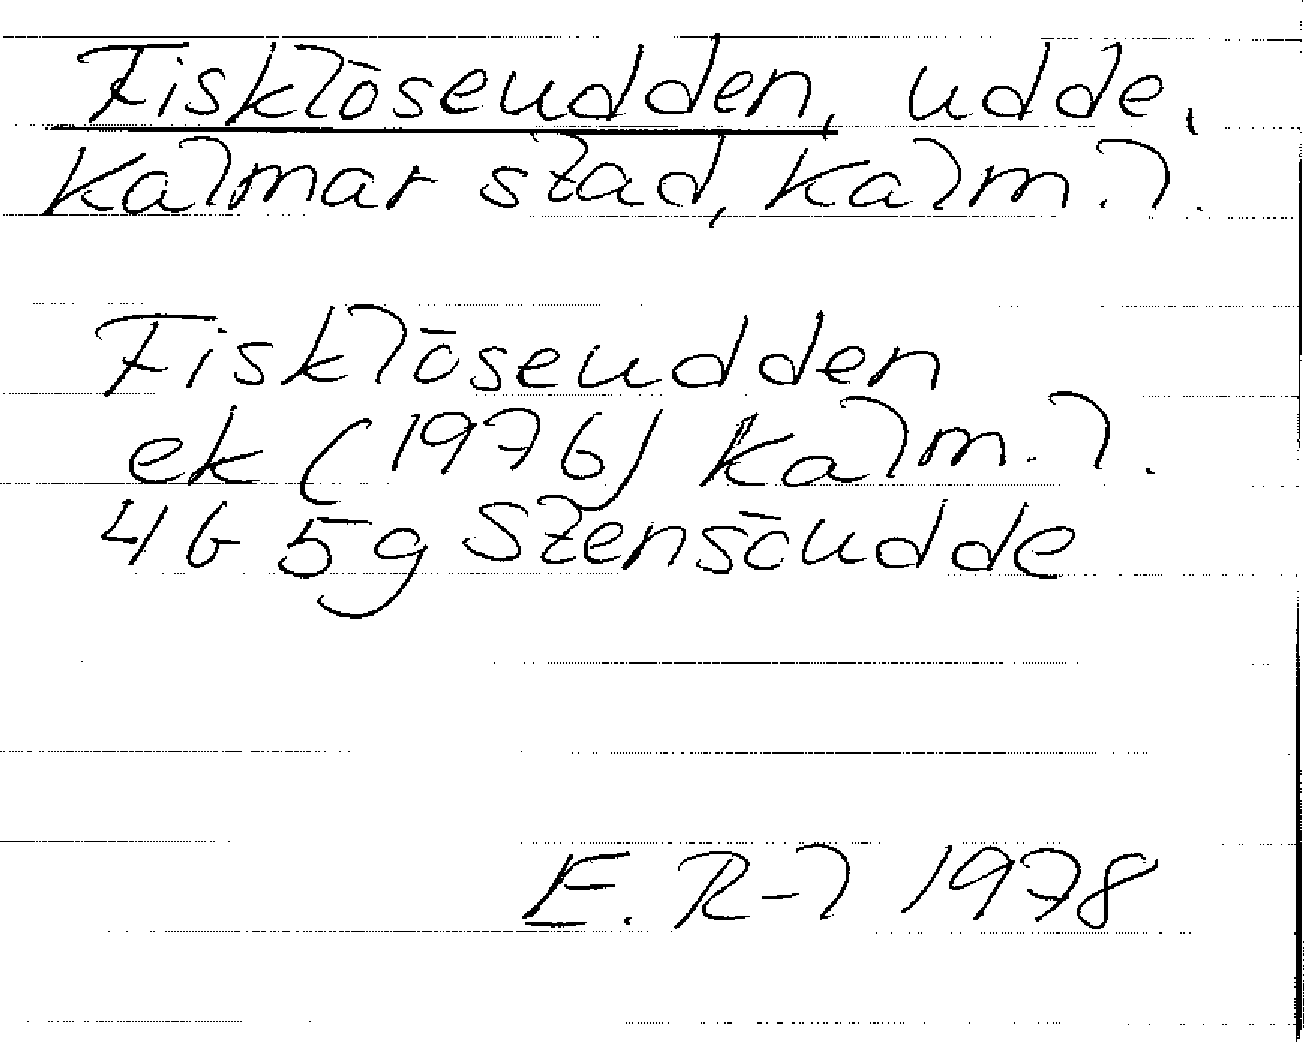 Fisklöseudden, udde,
Kalmar stad, Kalm. l.
Fisklöseudden
ek (1976) Kalm. l.
4G 5g Stensöudde
E. R-l 1978